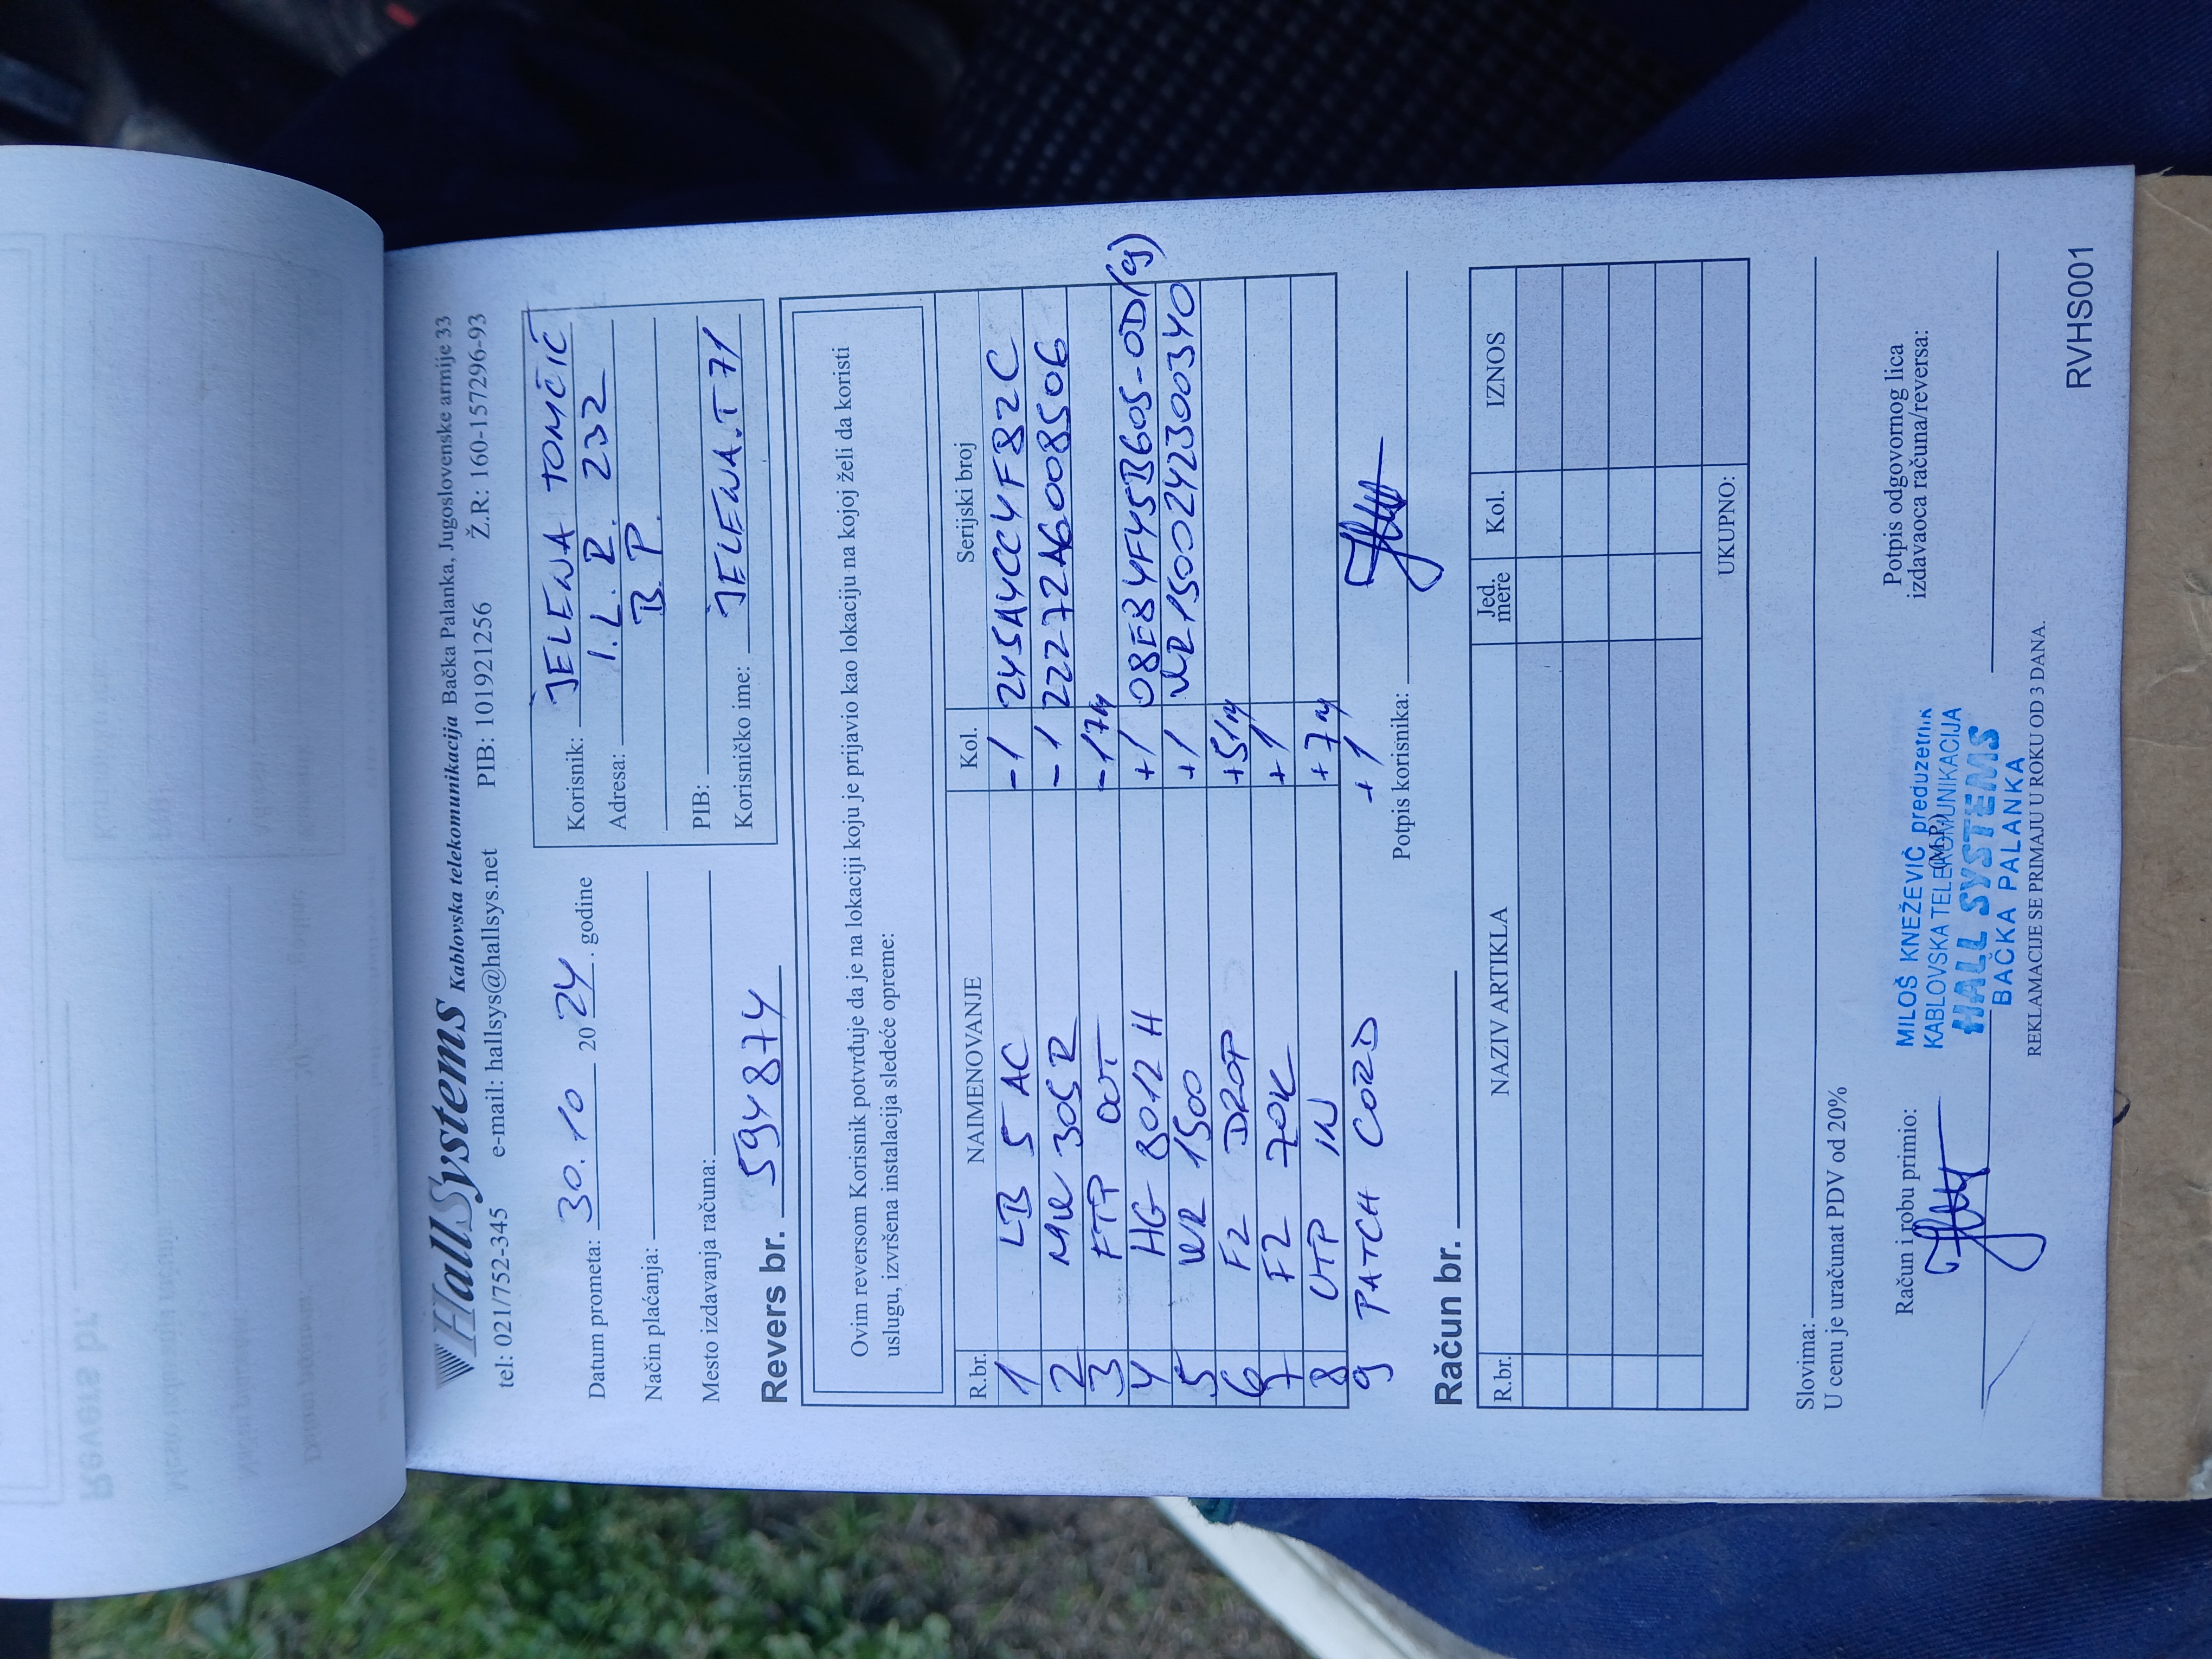 HallSystems Kablovska telekomunikacija Bačka Palanka, Jugoslovenske armije 33
tel: 021/752-345 e-mail: hallsys@hallsys.net PIB: 101921256 Ž.R: 160-157296-93
Datum prometa: 30. 10 2024. godine
Način plaćanja:
Mesto izdavanja računa:
Korisnik: JELENA TOMČIĆ
Adresa: I. L. R. 232
B. P.
PIB:
Korisničko ime: JELENA.T71
Revers br. 594874
Ovim reversom Korisnik potvrđuje da je na lokaciji koju je prijavio kao lokaciju na kojoj želi da koristi
uslugu, izvršena instalacija sledeće opreme:
R.br. NAIMENOVANJE Kol. Serijski broj
1 LB 5 AC -1 245A4CC4F82C
2 MW 305 R -1 22272A6008506
3 FTP OUT -17m
4 HG 8012 H +1 08E84F45B605-0D(g)
5 WR 1500 +1 WR1500242300340
6 F2 DROP +51m
7 F2 70K +1
8 UTP IN +7m
9 PATCH CORD +1
Potpis korisnika:
Račun br.
R.br. NAZIV ARTIKLA Jed. mere Kol. IZNOS
UKUPNO:
Slovima:
U cenu je uračunat PDV od 20%
Račun i robu primio:
(M.P.)
MILOŠ KNEŽEVIĆ preduzetnik
KABLOVSKA TELEKOMUNIKACIJA
HALL SYSTEMS
BAČKA PALANKA
Potpis odgovornog lica
izdavaoca računa/reversa:
REKLAMACIJE SE PRIMAJU U ROKU OD 3 DANA.
RVHS001
Revers br.